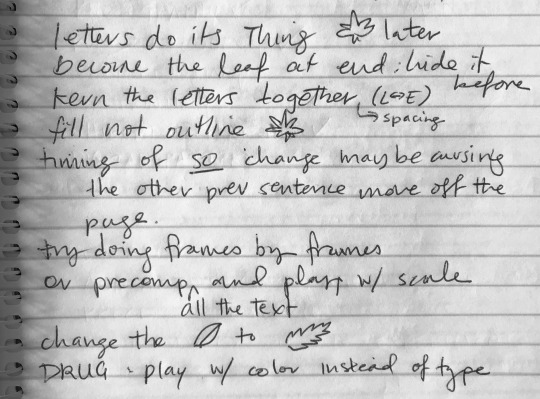 letters do its Thing later
become the leaf at end : hide it before
kern the letters together (L↔E)
↳ spacing
fill not outline
timing of so change may be causing
the other prev sentence move off the
page.
try doing frames by frames
or precomp all the text and play w/ scale
change the to
DRUG : play w/ color instead of type